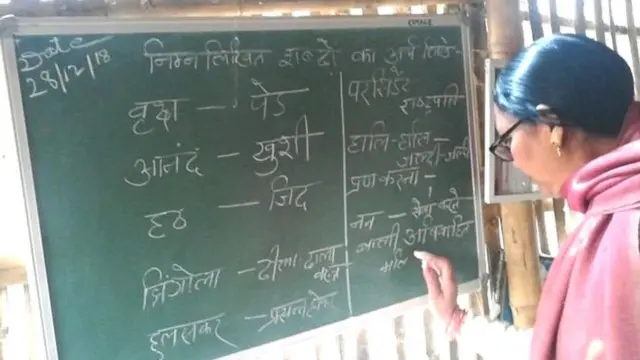 Date
28/12/18
निम्नलिखित शब्दों का अर्थ लिखें-
वृक्ष — पेड
आनंद — खुशी
हठ — जिद
झिंगोला — ढीला ढाला वस्त्र
हुलसकर — प्रसन्न होकर
परसिडेंट
राष्ट्रपति
हालि-हालि —
जल्दी-जल्दी
प्रण करना -
नन — सेवा करने
वाली अविवाहित